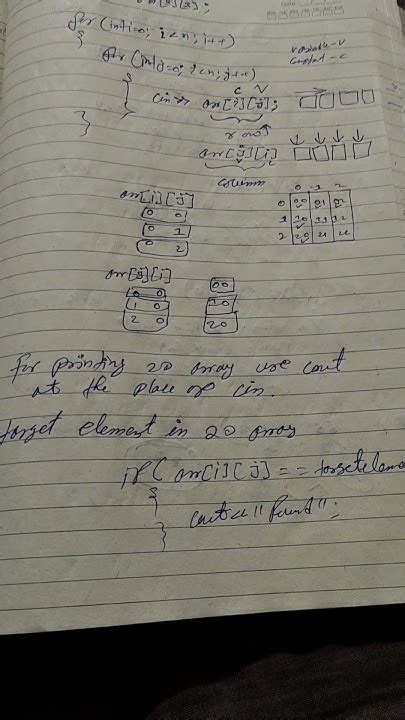 for (int i=0; i<n; i++)
{
for (int j=0; j<n; j++)
variable-v
constant-c
{
c v
cin>> arr[i][j];
}
row
arr[j][i]
column
arr[i][j]
0 0
0 1
0 2
0 1 2
0 00 01 02
1 10 11 12
2 20 21 22
arr[j][i]
0 0 00
1 0 10
2 0 20
For printing 2D array use cout
at the place of cin.
target element in 2D array
if( arr[i][j] == targetelem
{
cout<<"found";
}